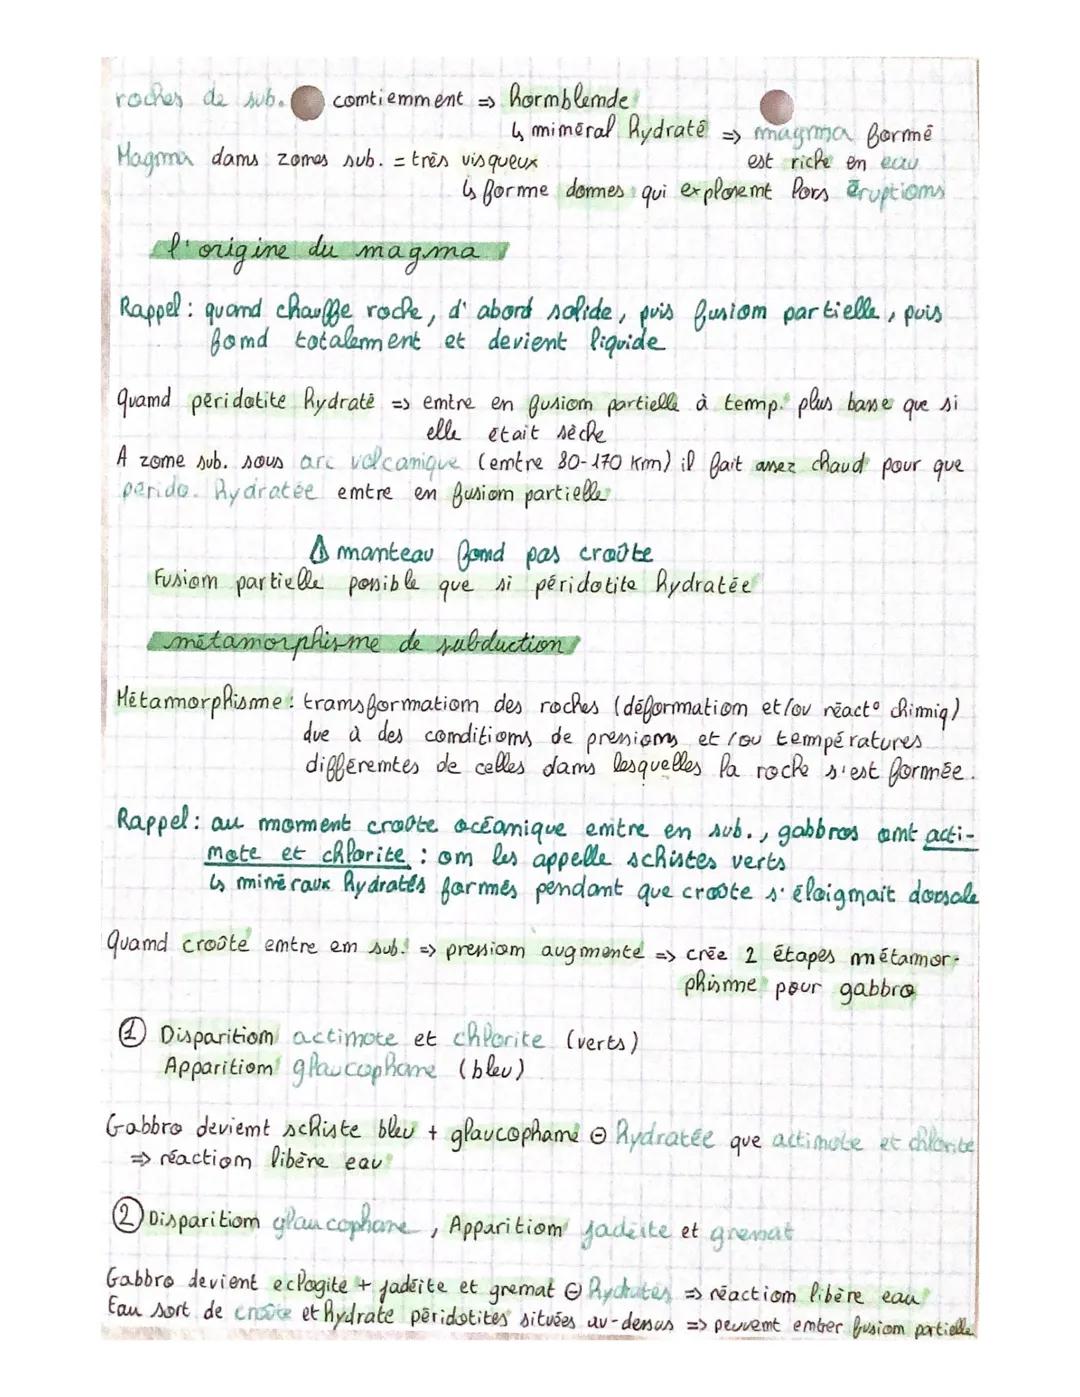 roches de sub. contiennent => hornblende
↳ minéral hydraté => magma formé
Magma dans zones sub. = très visqueux est riche en eau
↳ forme domes qui explosent lors éruptions
l'origine du magma
Rappel : quand chauffe roche, d'abord solide, puis fusion partielle, puis
fond totalement et devient liquide
Quand péridotite hydraté => entre en fusion partielle à temp. plus basse que si
elle était sèche
A zone sub. sous arc volcanique (entre 80-170 km) il fait assez chaud pour que
périodo. hydratée entre en fusion partielle
⚠ manteau fond pas croûte
Fusion partielle possible que si péridotite hydratée
métamorphisme de subduction
Métamorphisme : transformation des roches (déformation et/ou réact° chimiq)
due à des conditions de pressions et/ou températures
différentes de celles dans lesquelles la roche s'est formée.
Rappel : au moment croûte océanique entre en sub., gabbros ont acti-
note et chlorite : on les appelle schistes verts
↳ minéraux hydratés formés pendant que croûte s'éloignait dorsale
Quand croûte entre en sub. => pression augmente => crée 2 étapes métamor-
phisme pour gabbro
① Disparition actinote et chlorite (verts)
Apparition glaucophane (bleu)
Gabbro devient schiste bleu + glaucophane ⊖ hydratée que actinote et chlorite
=> réaction libère eau
② Disparition glaucophane, Apparition jadéite et grenat
Gabbro devient eclogite + jadéite et grenat ⊖ hydratés => réaction libère eau
Eau sort de croûte et hydrate péridotites situées au-dessus => peuvent entrer fusion partielle